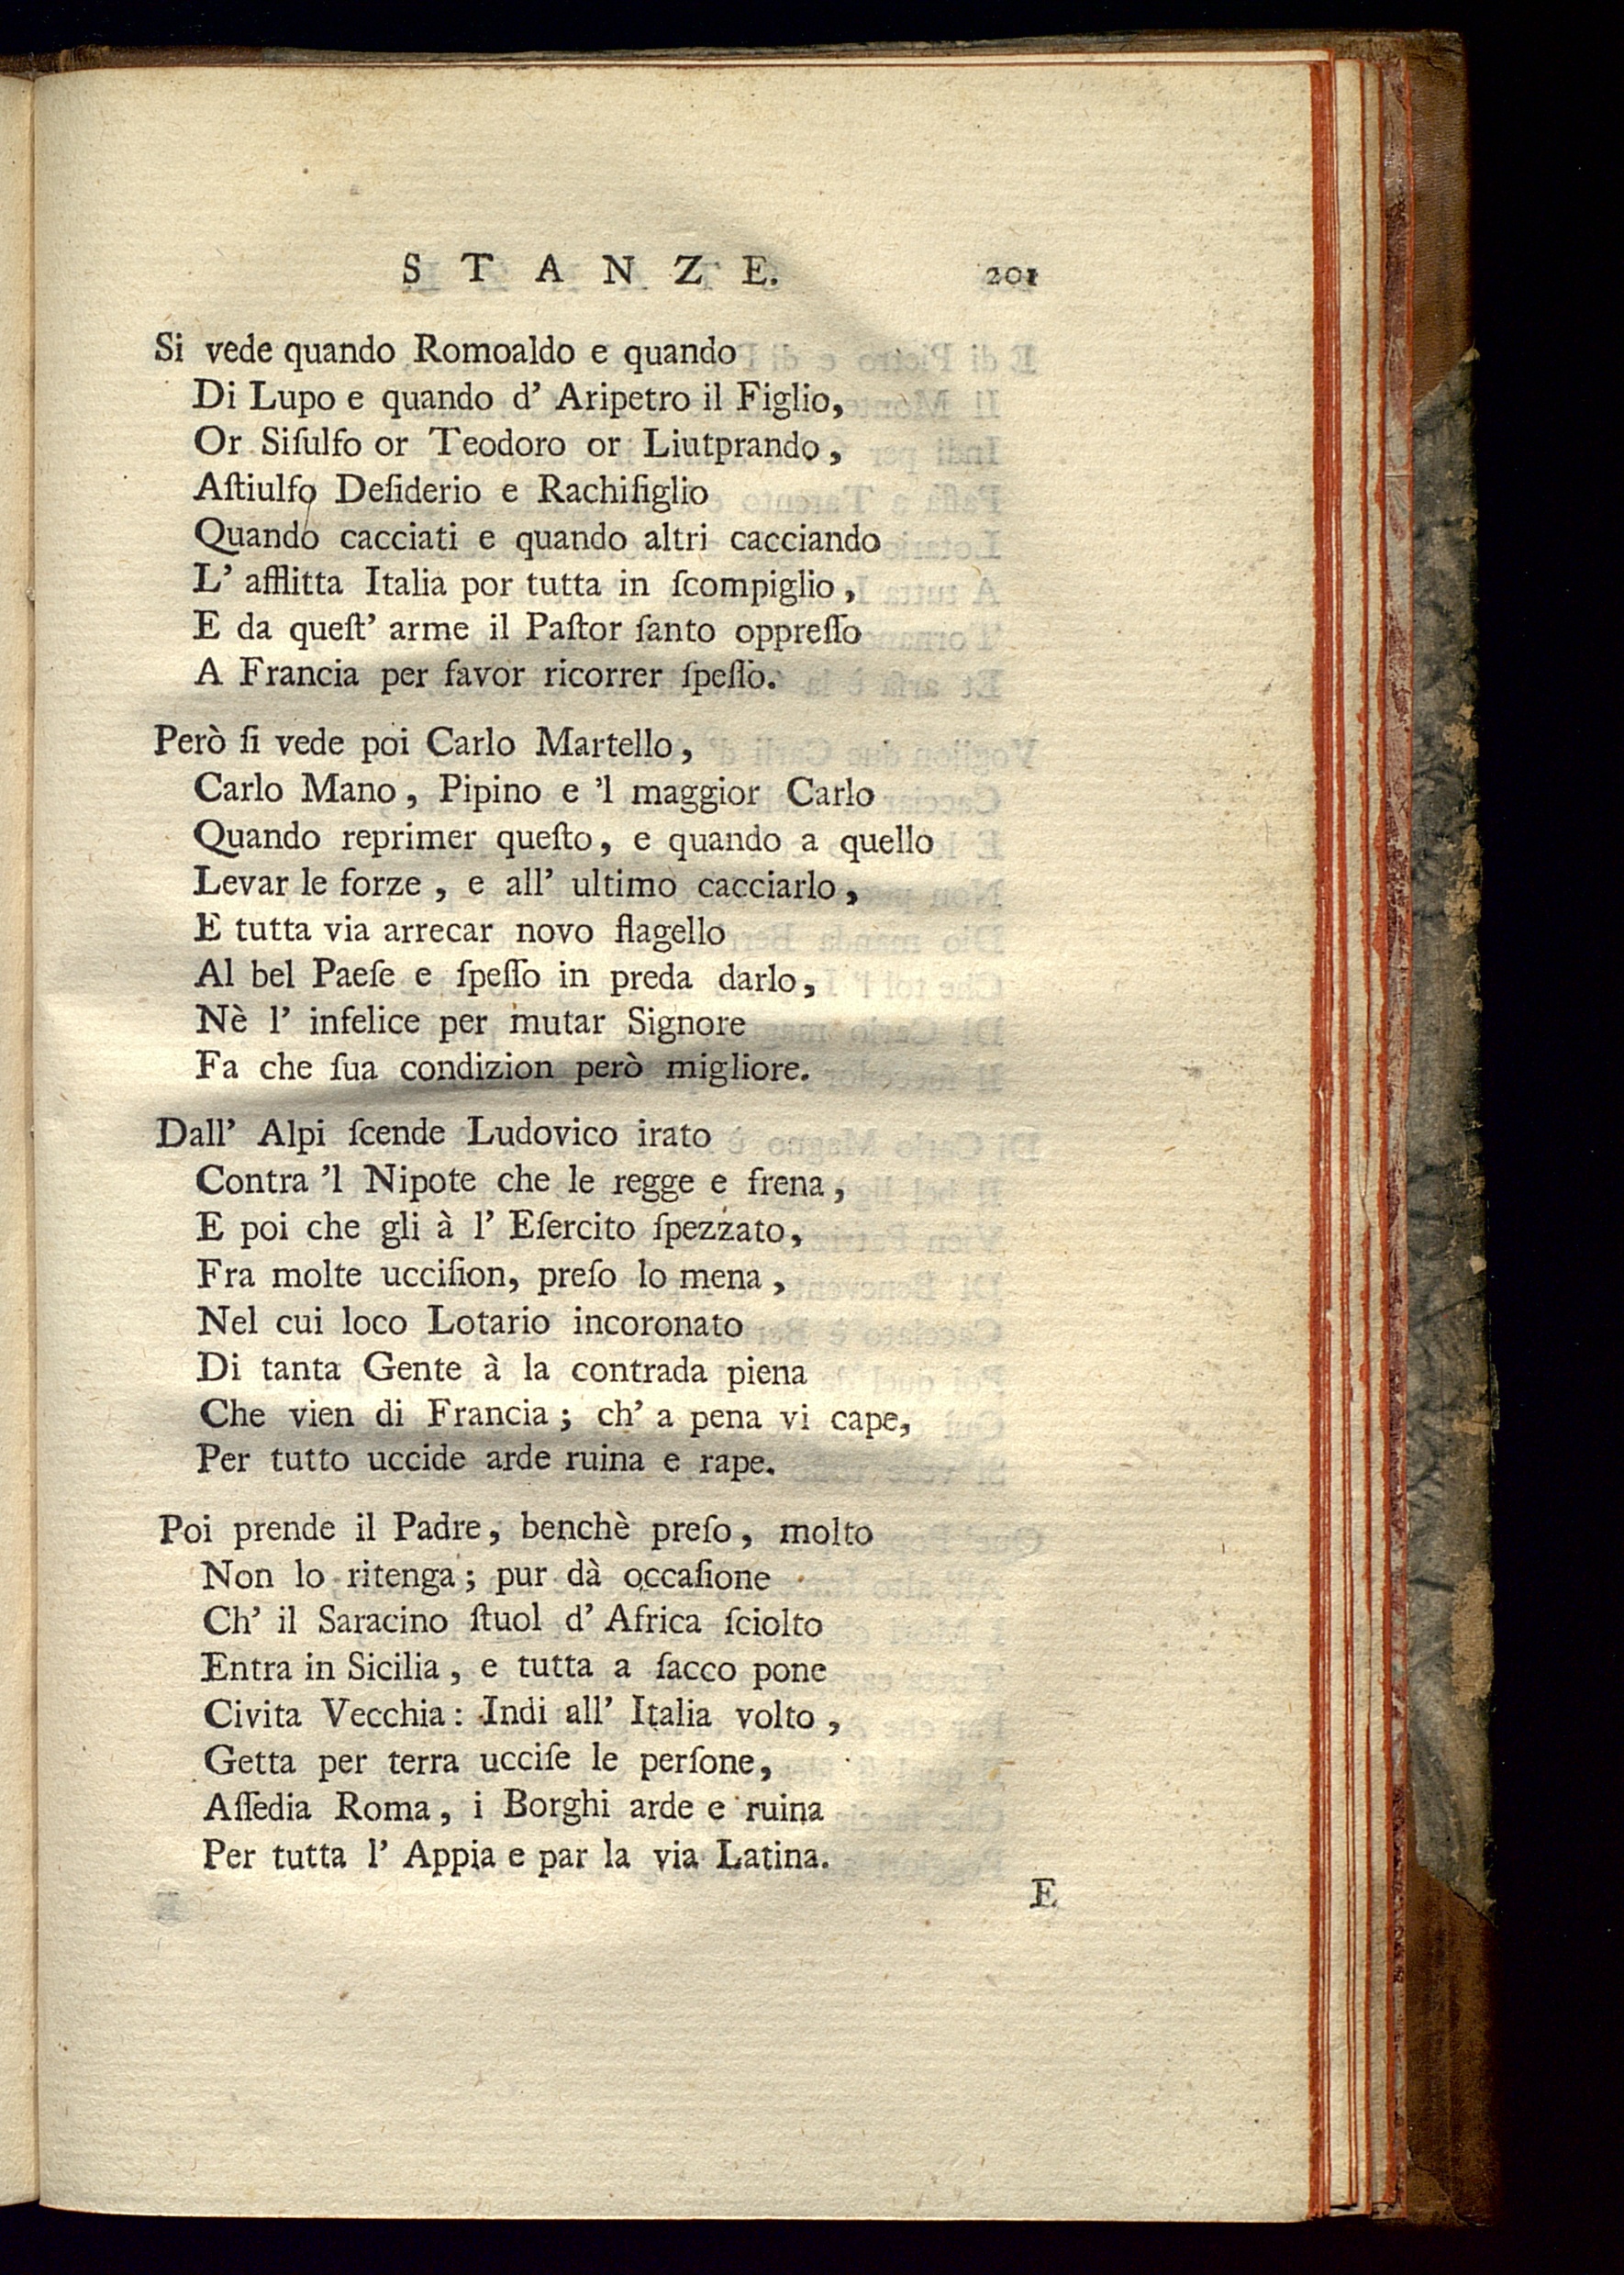 STANZE. 201
Si vede quando Romoaldo e quando
Di Lupo e quando d' Aripetro il Figlio,
Or Siſulfo or Teodoro or Liutprando,
Aſtiulfo Deſiderio e Rachiſiglio
Quando cacciati e quando altri cacciando
L' afflitta Italia por tutta in ſcompiglio,
E da queſt' arme il Paſtor ſanto oppreſſo
A Francia per favor ricorrer ſpeſſo.
Però ſi vede poi Carlo Martello,
Carlo Mano, Pipino e 'l maggior Carlo
Quando reprimer queſto, e quando a quello
Levar le forze, e all' ultimo cacciarlo,
E tutta via arrecar novo flagello
Al bel Paeſe e ſpeſſo in preda darlo,
Nè l' infelice per mutar Signore
Fa che ſua condizion però migliore.
Dall' Alpi ſcende Ludovico irato
Contra 'l Nipote che le regge e frena,
E poi che gli à l' Eſercito ſpezzato,
Fra molte ucciſion, preſo lo mena,
Nel cui loco Lotario incoronato
Di tanta Gente à la contrada piena
Che vien di Francia; ch' a pena vi cape,
Per tutto uccide arde ruina e rape.
Poi prende il Padre, benchè preſo, molto
Non lo ritenga; pur dà occaſione
Ch' il Saracino ſtuol d' Africa ſciolto
Entra in Sicilia, e tutta a ſacco pone
Civita Vecchia: Indi all' Italia volto,
Getta per terra ucciſe le perſone,
Aſſedia Roma, i Borghi arde e ruina
Per tutta l' Appia e par la via Latina.
E